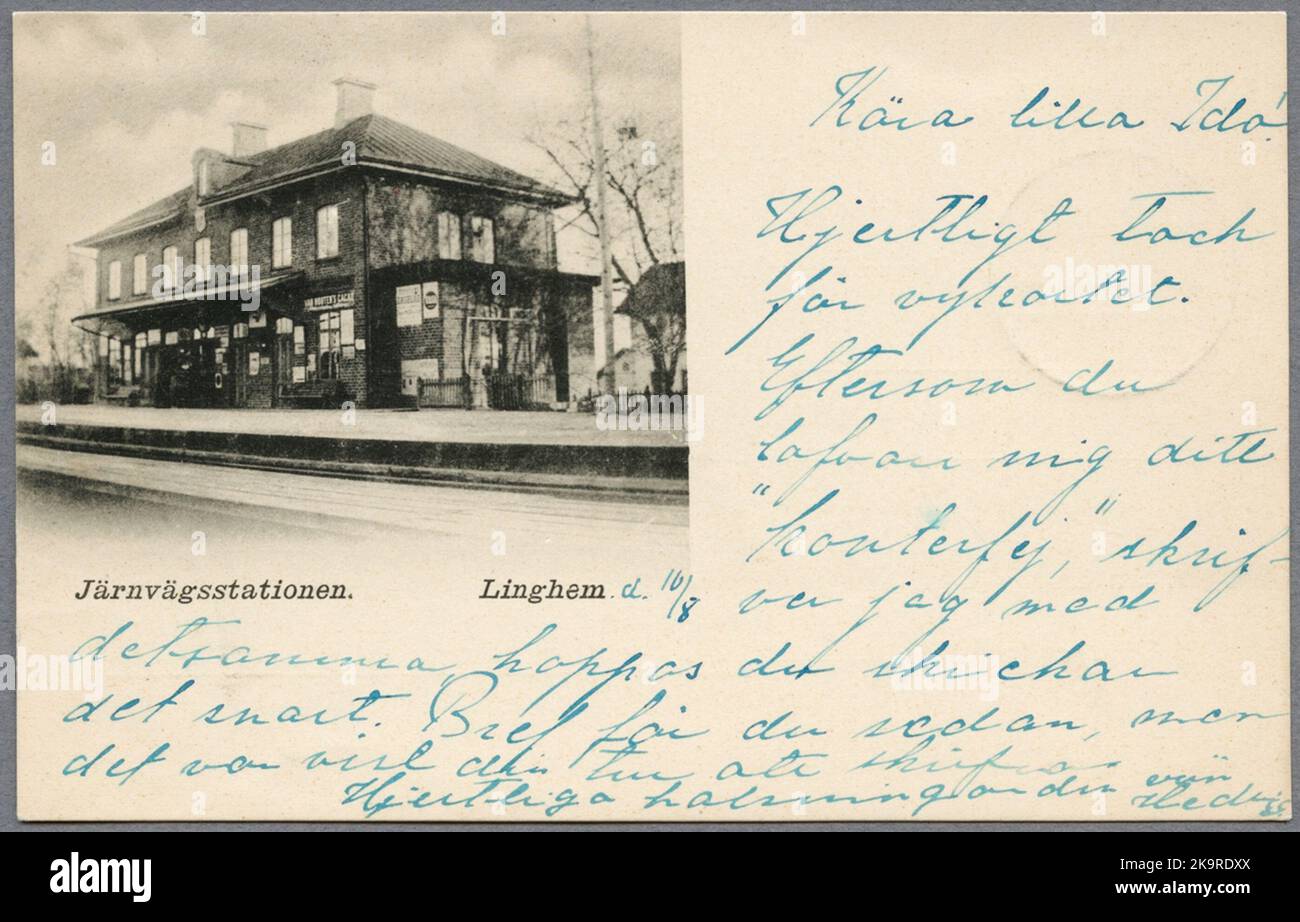 VAN HOUTEN'S CACAO
Kära lilla Ida!
Hjertligt tack
för vykortet.
Eftersom du
lofvar mig ditt
"konterfej", skrif-
Järnvägsstationen. Linghem. d. 16/8 ver jag med
detsamma, hoppas du skickar
det snart. Bref får du sedan, men
det var visst din tur att skrifva
Hjertliga hälsningar din vän
Hedvig
alamy
Image ID: 2K9RDXX
www.alamy.com